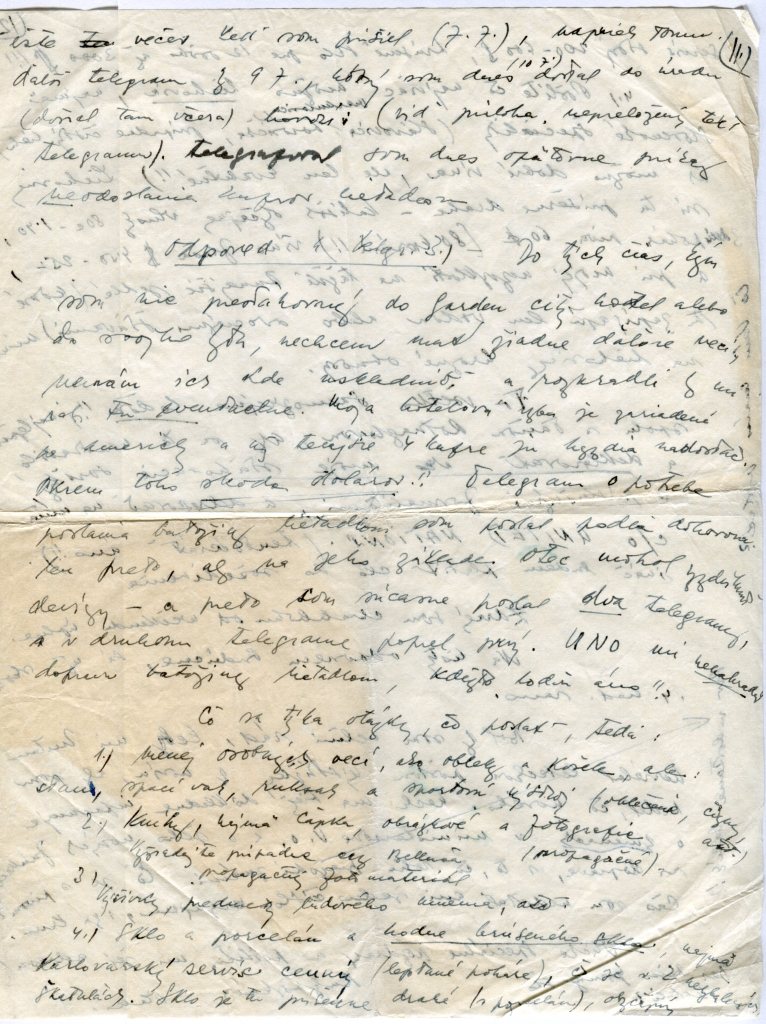 ešte večer. Keď som prišiel (7.7.), napriek tomu. (II.)
ďalší telegram z 9 7., ktorý som dnes (10.7.) dostal do úradu
(došiel tam včera) hovorí: (viď príloha, nepreložený text
telegramu). telegrafoval som dnes opätovne príkaz
neodoslania kufrov lietadlom
Odpoveď Do tých čias, kým
som nie preďahovaný do Garden city hotel alebo
do svojho bytu, nechcem mať žiadne ďalšie veci,
nemám ich kde uskladniť, a rozkradli by mi
ich tu eventuálne. Moja hotelová izba je zariadená
a už terajšie 4 kufre ju hyzdia nadosťač
okrem toho škoda dolárov!! Telegram o potrebe
poslania batožiny lietadlom som poslal podľa dohovoru
len preto, aby na jeho základe Otec mohol vyzdvihnúť
devízy – a preto som súčasne poslal dva telegramy,
a v druhom telegrame poprel prvý. UNO mi nenahradí
dopravu batožiny lietadlom, kdežto loďou áno!!
Čo sa týka otázky, čo poslať, teda:
1.) menej osobných vecí, ako obleky a košele, ale:
stan, spací vak, ruksak a športovú výstroj (oblečenie, čižmy, atď.)
2.) Knihy, najmä Čapka, obrázkové a fotografie
Vyžiadajte prípadne cez Belluša (propagačné)
propagačný foto materiál
3) Výšivky, predmety ľudového umenia, atď.
4.) Sklo a porcelán a hodne brúseného skla, najmä
Karlovarský servis cenný (leptané poháre), či je v 2
škatuliach. Sklo je tu príšerne drahé (i porcelán), obyčajný